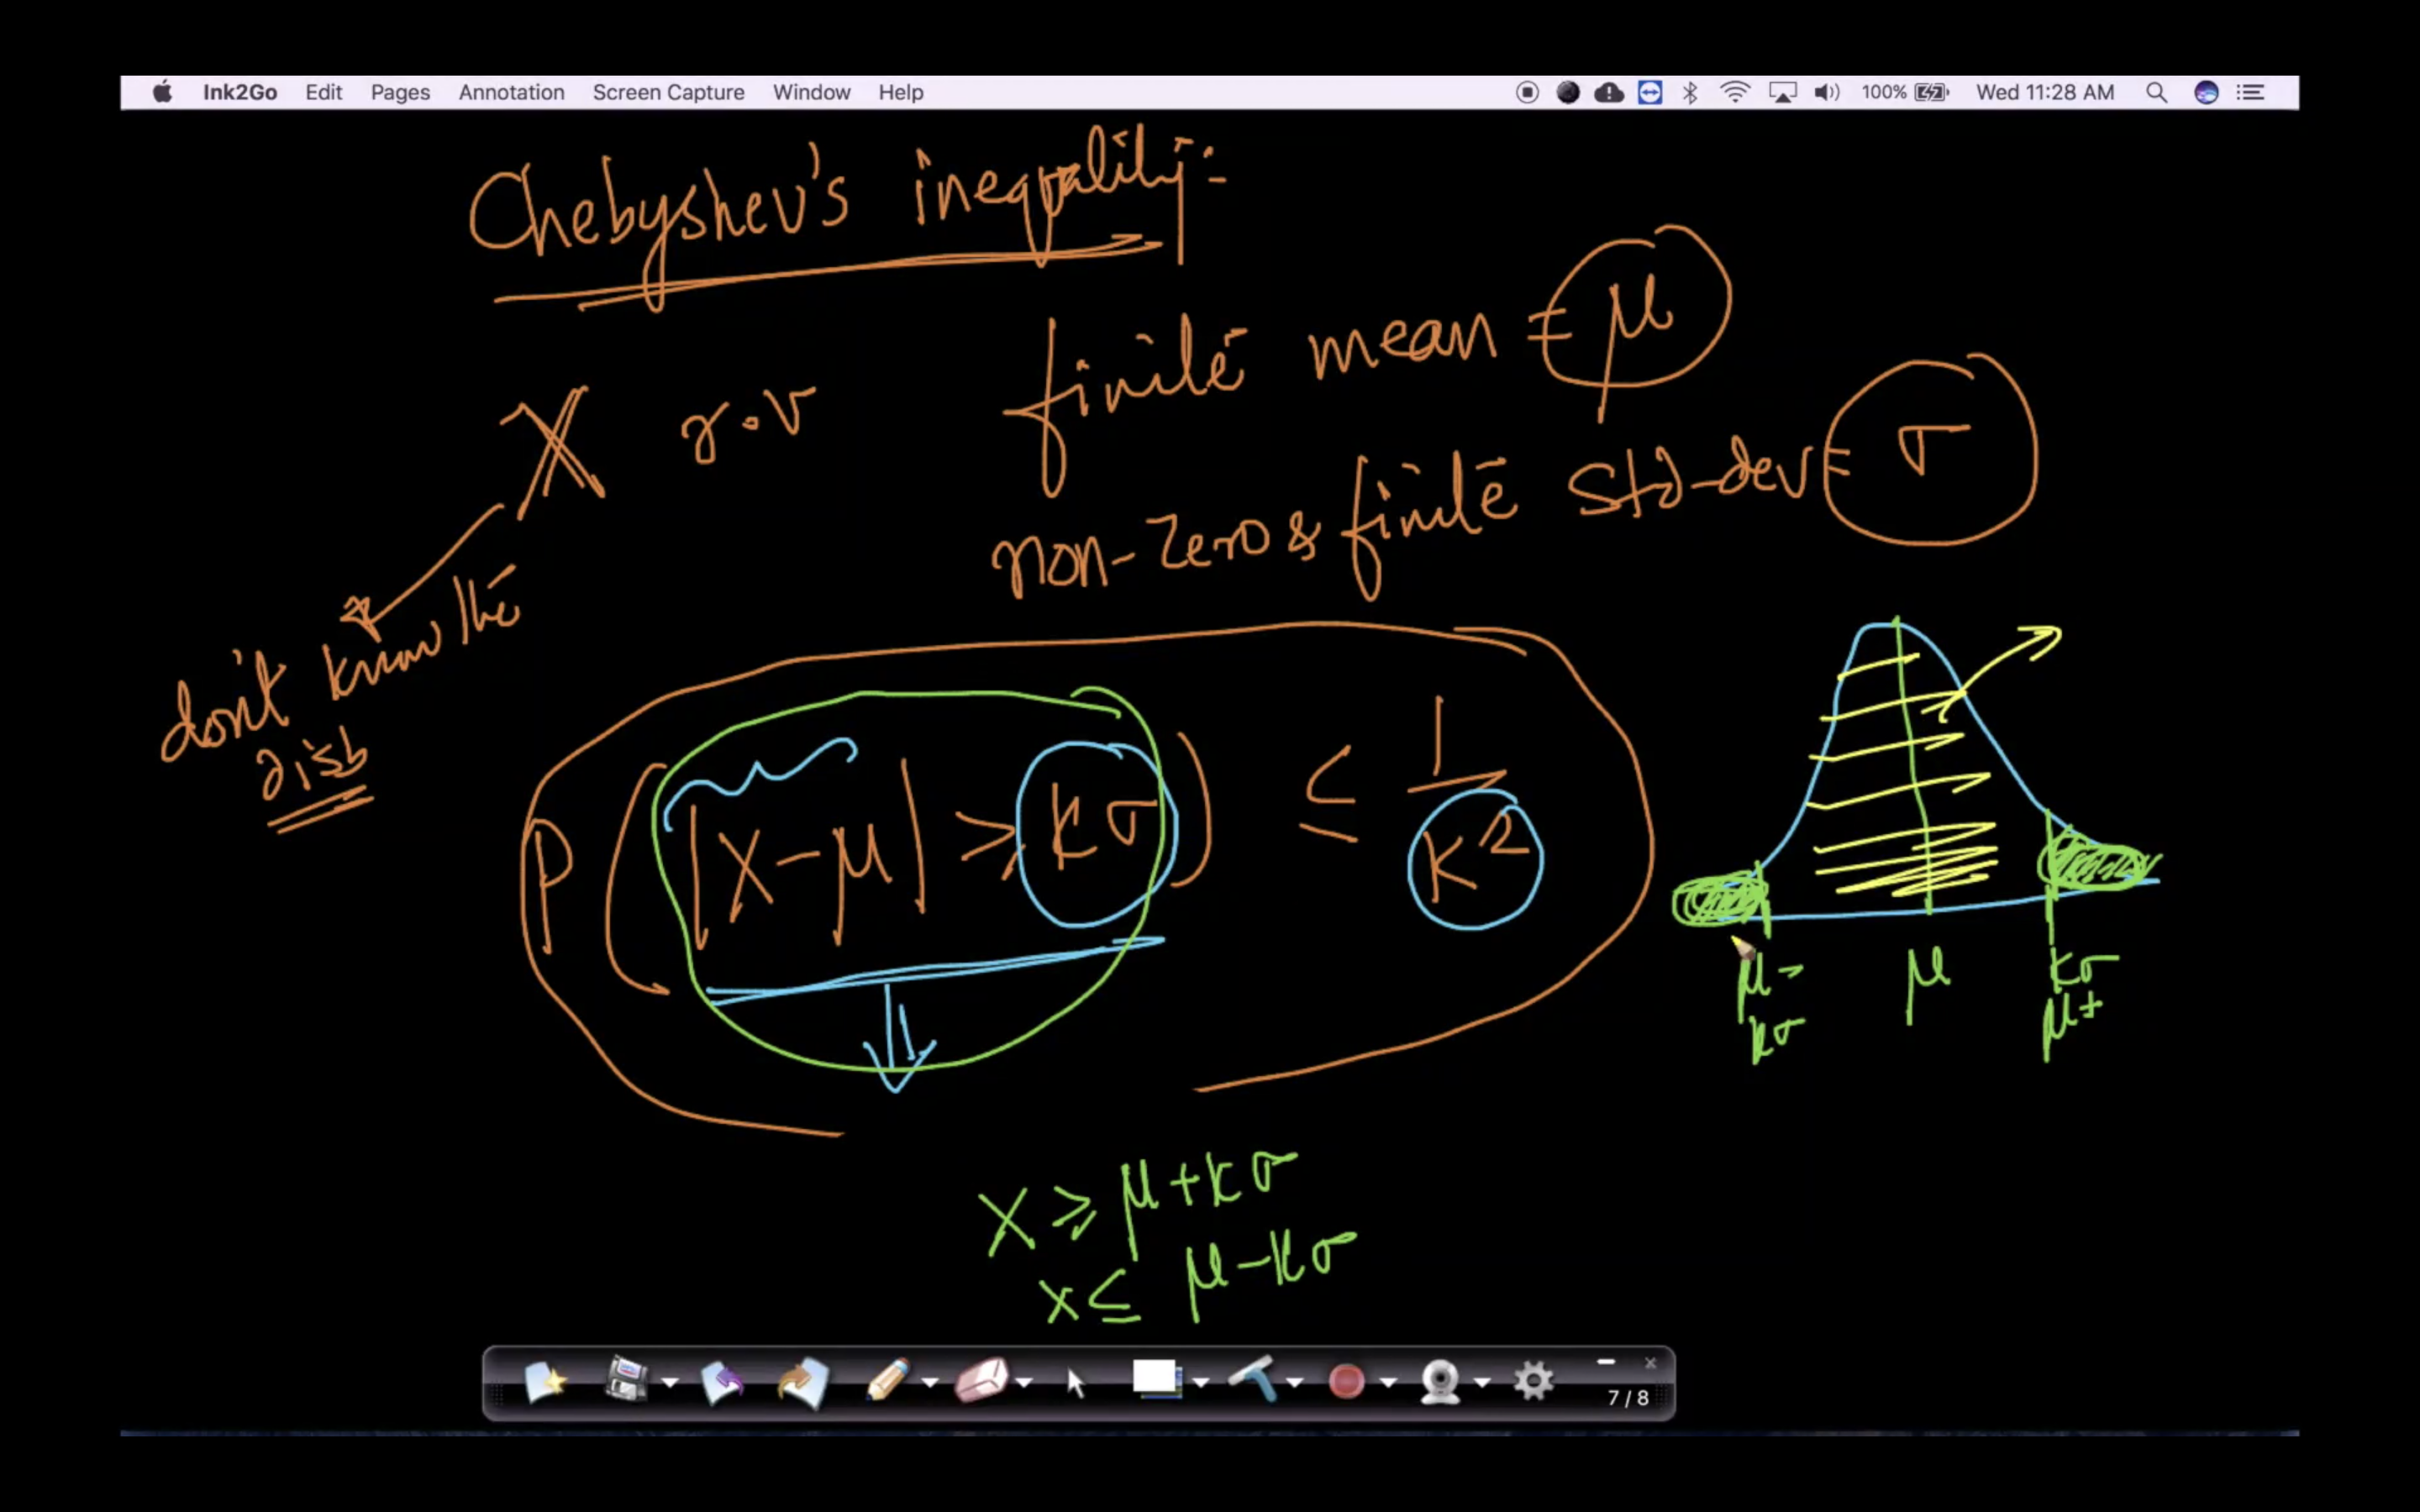 Ink2Go Edit Pages Annotation Screen Capture Window Help 100% Wed 11:28 AM
Chebyshev's inequality:-
finite mean = μ
X r.v
non-zero & finite std-dev = σ
don't know the
disb
P(|X-μ| ≥ kσ) ≤ 1/k²
μ- μ kσ
kσ μ+
X ≥ μ+kσ
x ≤ μ-kσ
7 / 8